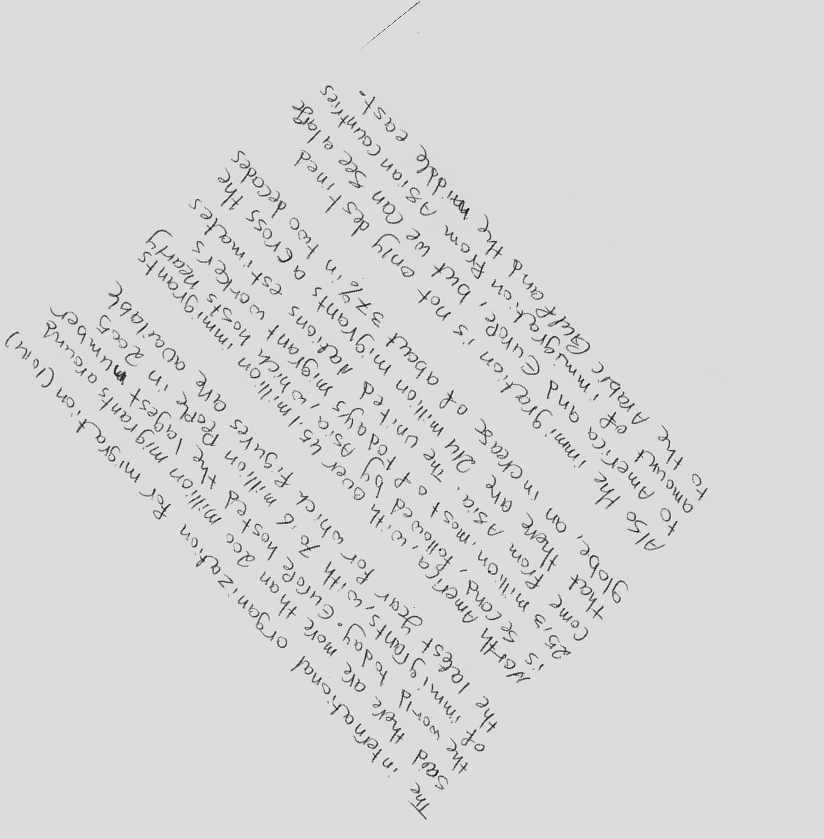 The international organization for migration (IOM)
said there are more than 200 million migrants around
the world today. Europe hosted the largest number
of immigrants, with 70.6 million People in 2005
the latest year for which figures are available
North America, with over 45.1 million immigrants
is second, followed by Asia, which hosts nearly
25.3 million, most of todays migrant workers
come from Asia. The united nations estimates
that there are 214 million migrants across the
globe, an increase of about 37% in two decades
Also the immigration is not only destined
to America and Europe, but we can see a large
amount of immigration from Asian countries
to the Arabic Gulf and the middle east.